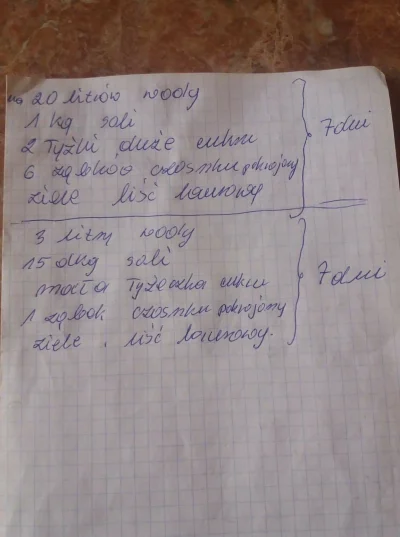 na 20 litrów wody
1 kg soli
2 Tyżki duże cukru
6 ząbków czosnku pokrojony
ziele liść laurowy
7 dni
3 litry wody
15 dkg soli
mała Tyżeczka cukru
1 ząbek czosnku pokrojony
ziele, liść laurowy.
7 dni